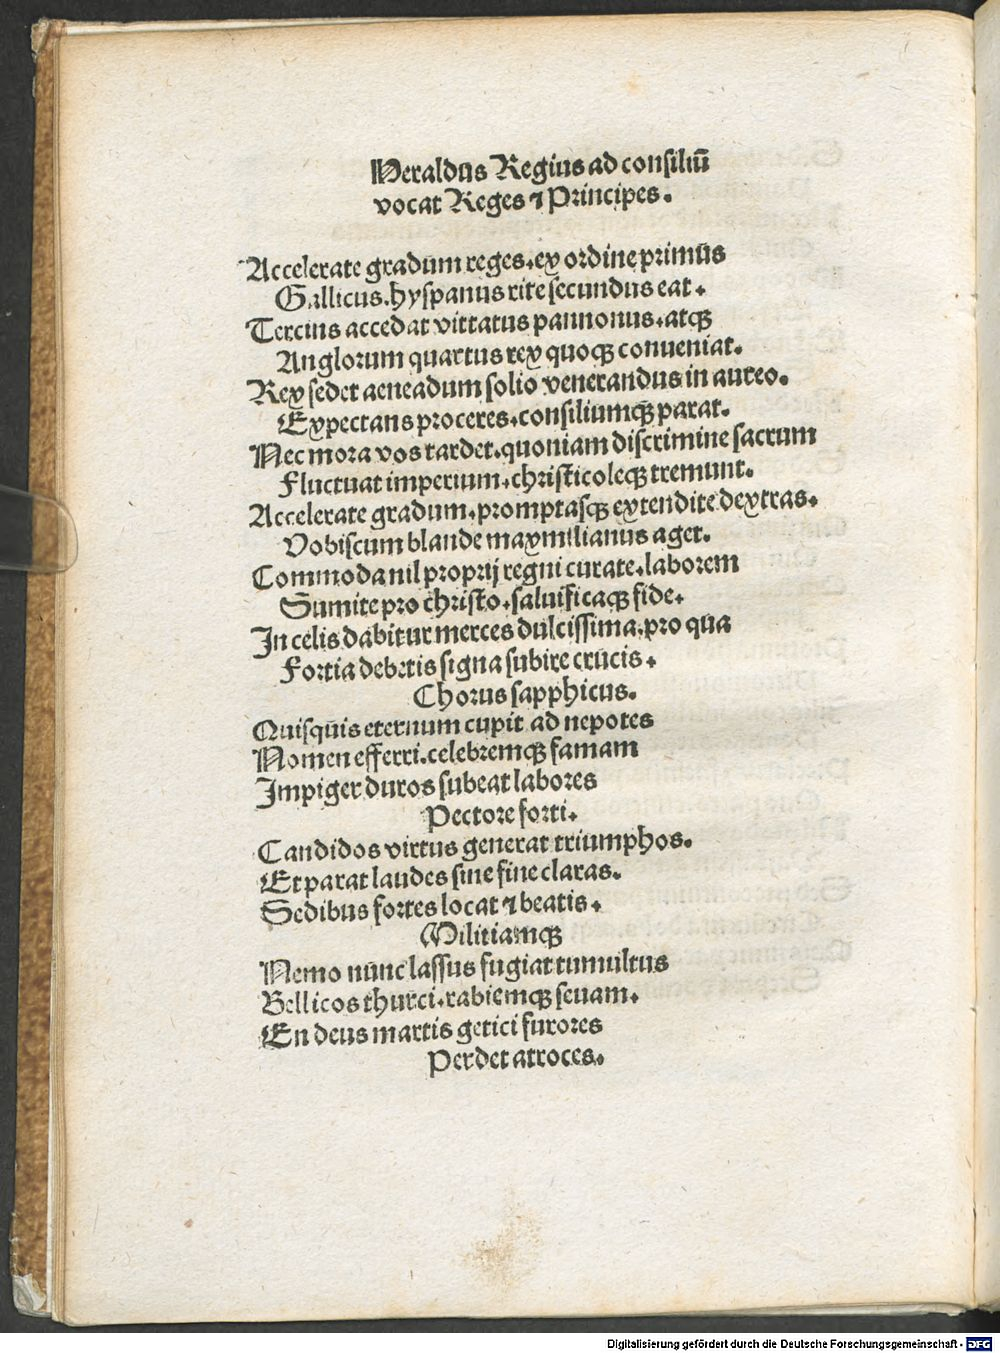 Heraldus Regius ad consiliū
vocat Reges ⁊ Principes.
Accelerate gradum reges. ex ordine primus
Gallicus. hyspanus rite secundus eat.
Tercius accedat vittatus pannonus. atqꝫ
Anglorum quartus rex quoqꝫ conueniat.
Rex sedet aeneadum solio venerandus in aureo.
Expectans proceres. consiliumqꝫ parat.
Nec mora vos tardet. quoniam discrimine sacrum
Fluctuat imperium. christicoleqꝫ tremunt.
Accelerate gradum. promptasqꝫ extendite dextras.
Vobiscum blande maxmilianus aget.
Commoda nil proprij regni curate. laborem
Sumite pro christo. saluificaqꝫ fide.
In celis dabitur merces dulcissima. pro qua
Fortia debetis signa subire crucis.
Chorus sapphicus.
Quisquis eternum cupit ad nepotes
Nomen efferri. celebremqꝫ famam
Impiger duros subeat labores
Pectore forti.
Candidos virtus generat triumphos.
Et parat laudes sine fine claras.
Sedibus fortes locat ⁊ beatis.
Militiamqꝫ
Nemo nunc lassus fugiat tumultus
Bellicos thurci. rabiemqꝫ seuam.
En deus martis getici furores
Perdet atroces.
Digitalisierung gefördert durch die Deutsche Forschungsgemeinschaft - DFG